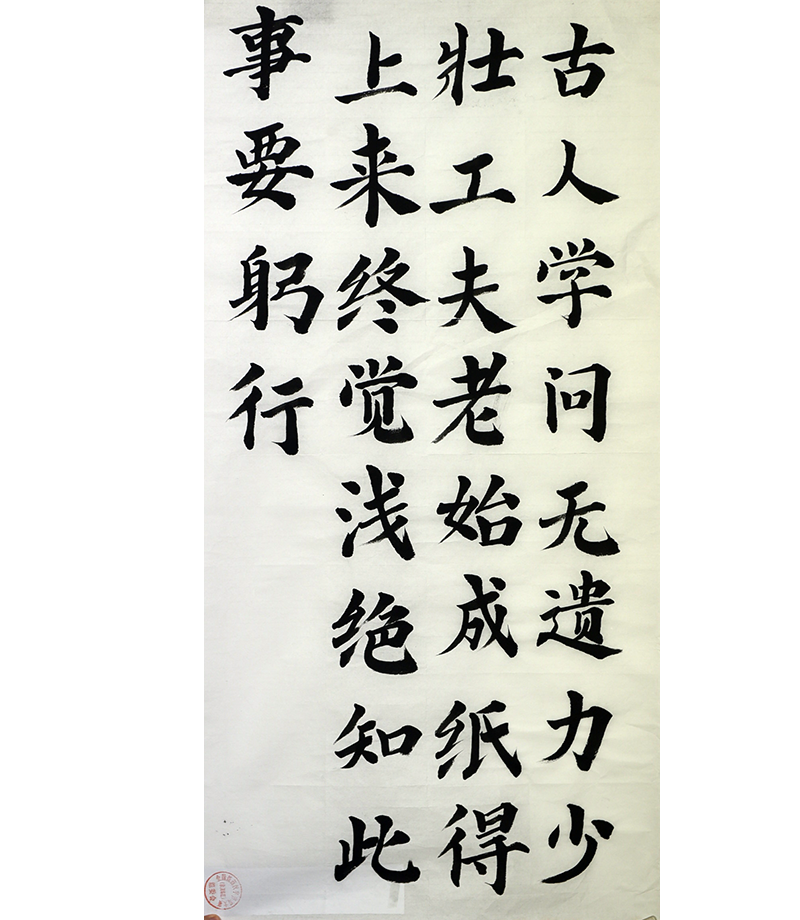 古人学问无遗力少
壮工夫老始成纸得
上来终觉浅绝知此
事要躬行